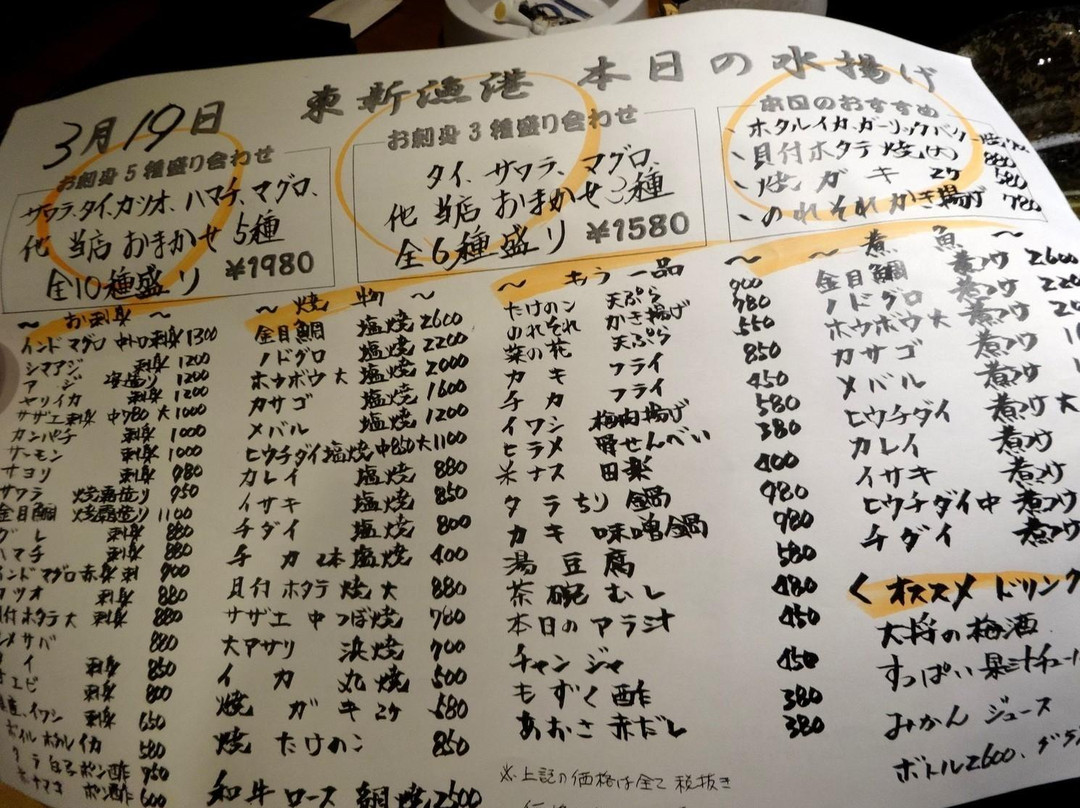 3月19日 東新漁港 本日の水揚げ
お刺身5種盛り合わせ
サワラ、タイ、カツオ、ハマチ、マグロ、
他 当店おまかせ5種
全10種盛り ¥1980
お刺身3種盛り合わせ
タイ、サワラ、マグロ、
他 当店おまかせ3種
全6種盛り ¥1580
本日のおすすめ
、ホタルイカ、ガーリックバター焼
、貝付ホタテ焼(大) 880
、焼ガキ 2ケ 580
、のれそれかき揚げ 780
〜 お刺身 〜
インドマグロ 中トロ刺身 1300
シマアジ 刺身 1200
アジ 姿造り 1200
ヤリイカ 刺身 1200
サザエ刺身 中780 大1000
カンパチ 刺身 1000
サーモン 刺身 1000
サヨリ 刺身 980
サワラ 焼霜造り 950
金目鯛 焼霜造り 1100
グレ 刺身 880
ハマチ 刺身 880
インドマグロ赤身刺 900
カツオ 刺身 880
貝付ホタテ 大 刺身 880
シメサバ 880
タイ 刺身 850
エビ 刺身 800
イワシ 刺身 650
ボイルホタルイカ 580
タラ白子ポン酢 950
ポン酢 600
〜 焼物 〜
金目鯛 塩焼 2600
ノドグロ 塩焼 2200
ホウボウ 大 塩焼 2000
カサゴ 塩焼 1600
メバル 塩焼 1200
ヒウチダイ塩焼 中880 大1100
カレイ 塩焼 880
イサキ 塩焼 850
チダイ 塩焼 800
チカ 2本 塩焼 400
貝付ホタテ焼 大 880
サザエ 中 つぼ焼 780
大アサリ 浜焼 700
イカ 丸焼 500
焼ガキ 2ケ 580
焼たけのこ 850
和牛ロース 網焼 2500
〜 もう一品 〜
たけのこ 天ぷら 900
のれそれ かき揚げ 780
菜の花 天ぷら 550
カキ フライ 850
チカ フライ 450
イワシ 梅肉揚げ 580
ヒラメ 骨せんべい 380
米ナス 田楽 400
タラちり鍋 980
カキ味噌鍋 980
湯豆腐 580
茶碗むし 480
本日のアラ汁 450
チャンジャ 450
もずく酢 380
あおさ赤だし 380
※上記の価格は全て税抜き
〜 煮魚 〜
金目鯛 煮つけ 2600
ノドグロ 煮つけ
ホウボウ 大 煮つけ
カサゴ 煮つけ
メバル 煮つけ
ヒウチダイ 煮つけ 大
カレイ 煮つけ
イサキ 煮つけ
ヒウチダイ中 煮つけ
チダイ 煮つけ
く オススメ ドリンク
大将の梅酒
すっぱい果汁チュー
みかん ジュース
ボトル2600、グラ